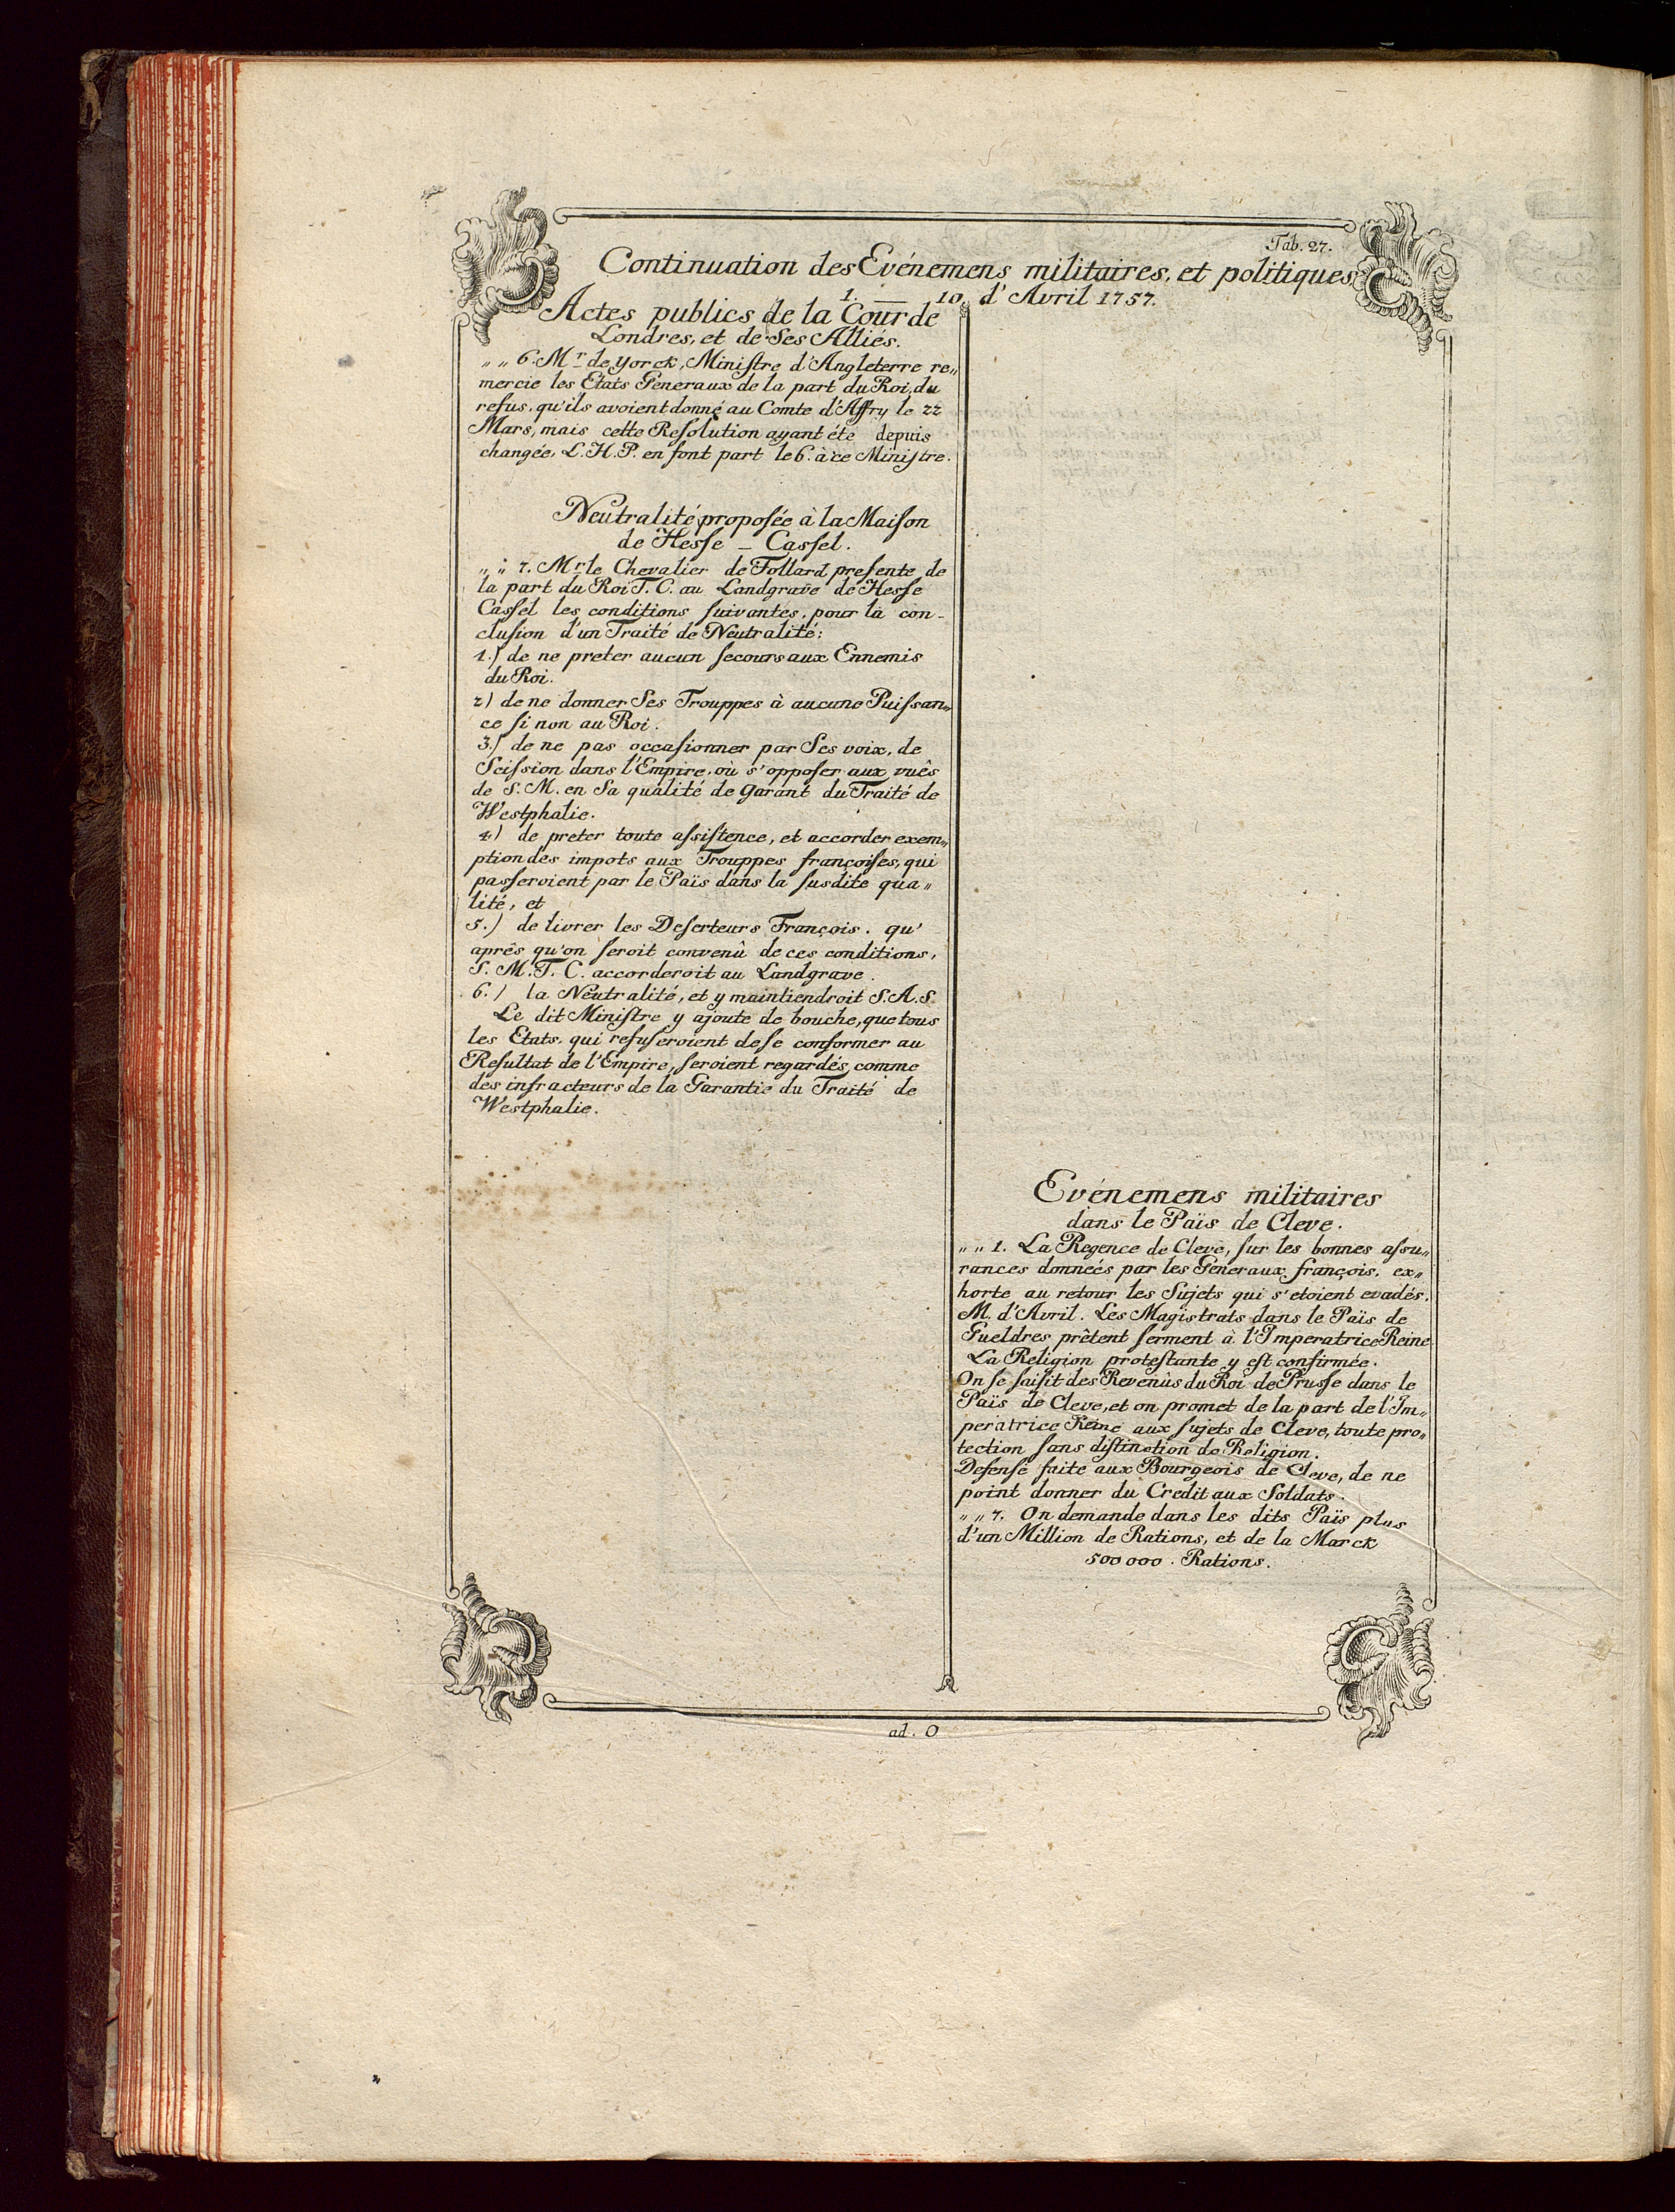 Tab. 27.
Continuation des Evénemens militaires, et politiques
1. — 10. d'Avril 1757.
Actes publics de la Cour de
Londres, et de Ses Alliés.
„ „ 6. Mr. de Yorck, Ministre d'Angleterre re„
mercie les Etats Generaux de la part du Roi, du
refus, qu'ils avoient donné au Comte d'Affry le 22
Mars, mais cette Resolution ayant éte depuis
changée, L.H.P. en font part le 6. à ce Ministre.
Neutralité proposée à la Maison
de Hesse - Cassel.
„ „ 7. Mr. le Chevalier de Follard presente de
la part du Roi T. C. au Landgrave de Hesse
Cassel les conditions suivantes, pour la con-
clusion d'un Traité de Neutralité:
1.) de ne preter aucun secours aux Ennemis
du Roi.
2) de ne donner Ses Trouppes à aucune Puissan„
ce si non au Roi.
3.) de ne pas occasionner par Ses voix, de
Scission dans l'Empire, où s'opposer aux vuês
de S. M. en Sa qualité de Garant du Traité de
Westphalie.
4.) de preter toute assistence, et accorder exem„
ption des impots aux Trouppes françoises, qui
passeroient par le Païs dans la susdite qua„
lité, et
5.) de livrer les Deserteurs François. qu'
aprês qu'on seroit convenû de ces conditions,
S. M. T. C. accorderoit au Landgrave.
6.) la Neutralité, et y maintiendroit S.A.S.
Le dit Ministre y ajoute de bouche, que tous
les Etats, qui refuseroient de se conformer au
Resultat de l'Empire, seroient regardés, comme
des infracteurs de la Garantie du Traité de
Westphalie.
Evénemens militaires
dans le Païs de Cleve.
„ „ 1. La Regence de Cleve, sur les bonnes assu„
rances donneés par les Géneraux françois, ex„
horte au retour les Sujets qui s'etoient evadés.
M. d'Avril. Les Magistrats dans le Païs de
Gueldres prêtent serment à l'Imperatrice Reine
La Religion protestante y est confirmée.
On se saisit des Revenûs du Roi de Prusse dans le
Païs de Cleve, et on promet de la part de l'Im„
peratrice Reine aux sujets de Cleve, toute pro„
tection sans distinction de Religion.
Defense faite aux Bourgeois de Cleve, de ne
point donner du Credit aux Soldats.
„ „ 7. On demande dans les dits Païs plus
d'un Million de Rations, et de la Marck
500 000. Rations.
ad. O